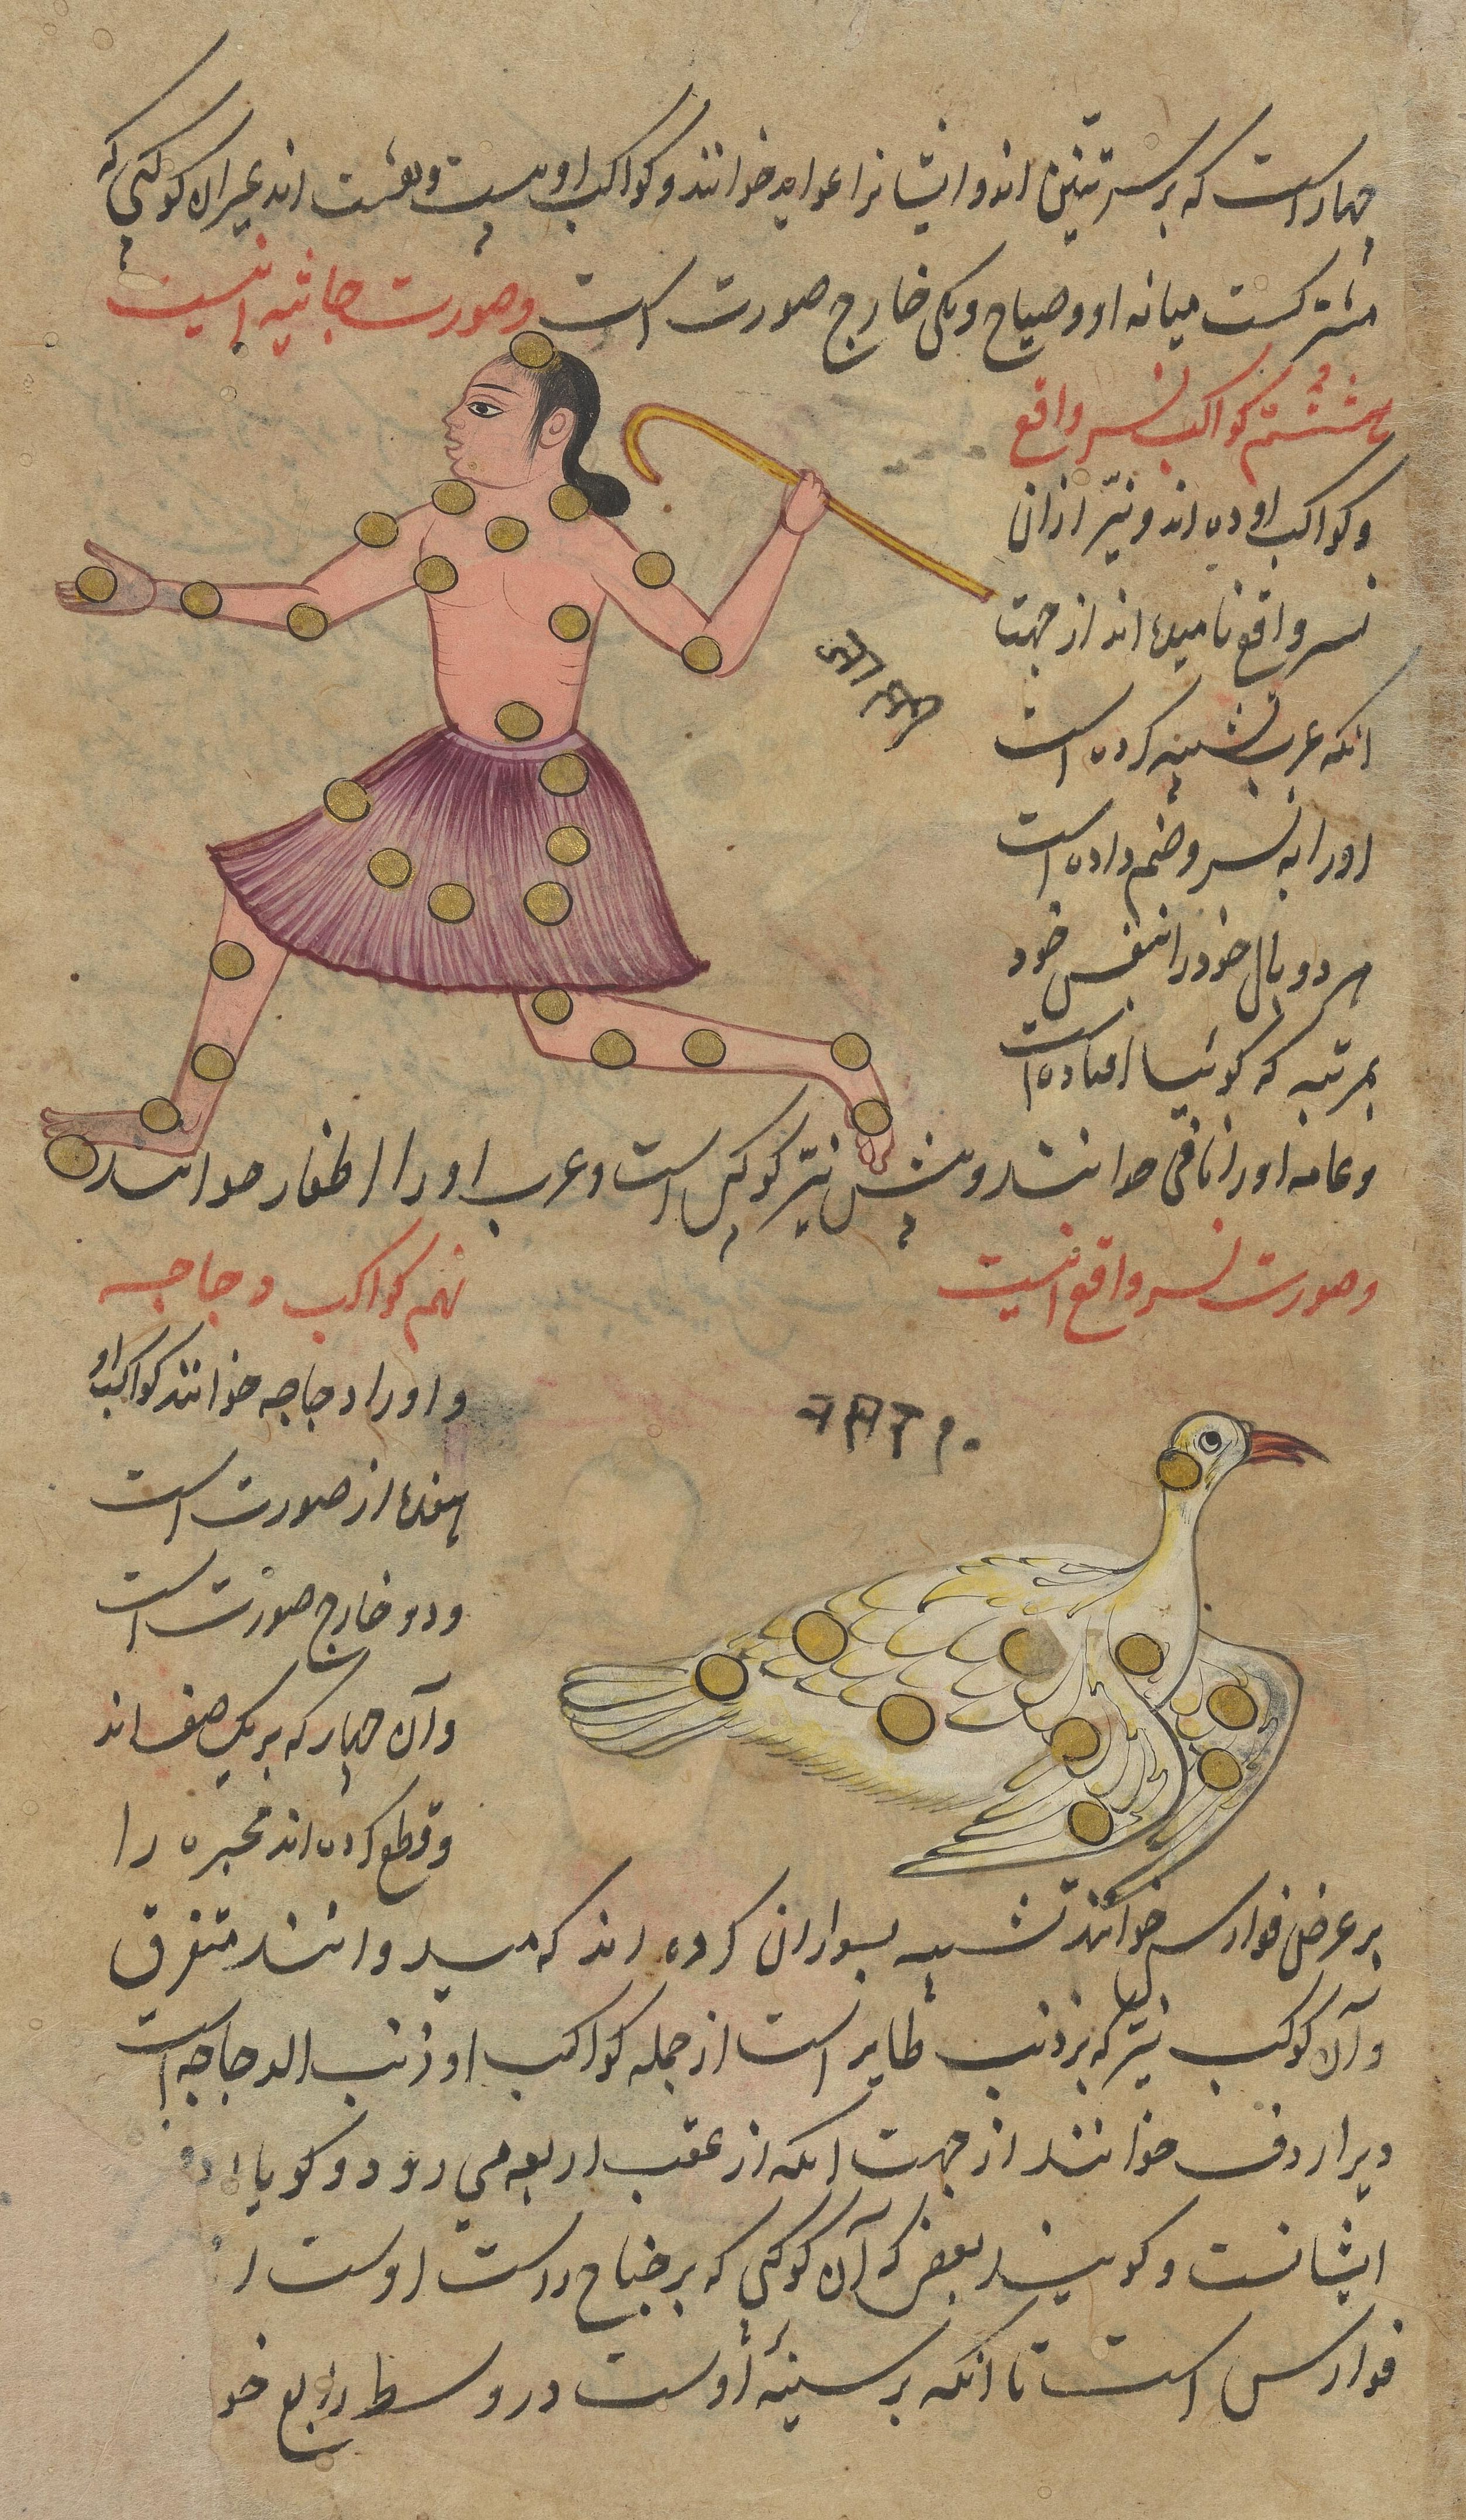 چهار است که بر سر تنین اند و ایشانرا عواید خوانند و کواکب او بیست و هشت اند غیر از کوکبی که
مشترکست میانه او و صیاح و یکی خارج صورت است وصورت جاثیه اینست
هشتم کواکب نسر واقع
و کواکب او ده اند و نیّر ازان
نسر واقع نامیده اند از جهت
انکه عرب تشبیه کرده است
اورا به نسر و ضم داده است
هر دو بال خود را بنفس خود
بمرتبه که کوئیا افتاده است
و عامه اورا اثافی خوانند و پیش نیّر کوکبی است و عرب اورا اظفار خوانند
وصورت نسر واقع اینست
نهم کواکب دجاجه
و اورا دجاجه خوانند کواکب او
هفده از صورت است
و دو خارج صورت است
و آن چهار که بر یک صف اند
و قطع کرده اند مجره را
بر عرض فوارس خوانند تشبیه بسواران کرده اند که میدوانند متفرق
و آن کوکب نیّر که بر ذنب طایر است از جمله کواکب او ذنب الدجاجه است
ویرا ردف خوانند از جهت انکه از عقب اربعه می رود و کویا
ایشانست و کویند بعض که آن کوکبی که بر جناح راست اوست از
فوارس است تا انکه بر سینهٔ اوست در وسط رابع خو